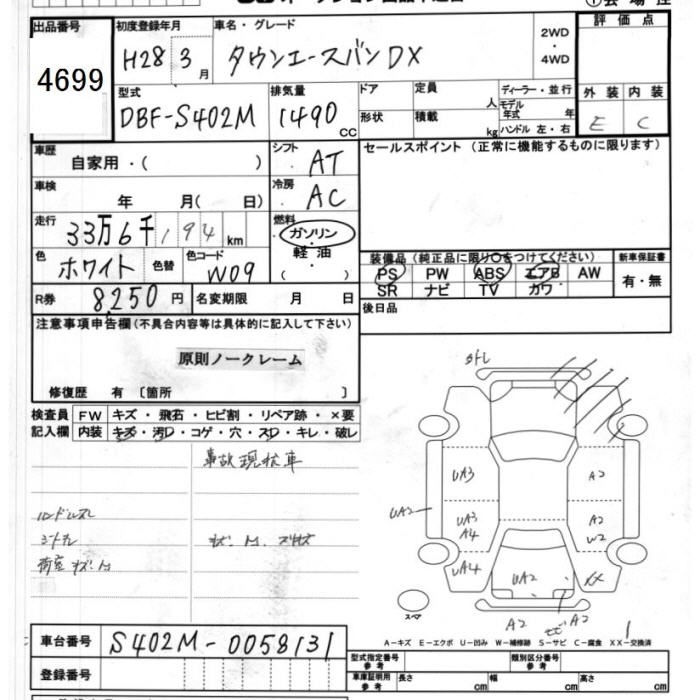 出品番号
4699
初度登録年月
H28 3月
車名・グレード
タウンエースバンDX
2WD
・
4WD
評価点
外装 内装
E C
型式
DBF-S402M
排気量
1490 cc
ドア
形状
定員 人
積載 kg
ディーラー・並行
モデル年式 年
ハンドル 左・右
車歴
自家用・( )
シフト
AT
セールスポイント (正常に機能するものに限ります)
車検
年 月( 日)
冷房
AC
走行
33万6千194 km
燃料
ガソリン
・
軽油
・
( )
色
ホワイト
色替
色コード
W09
装備品 (純正品に限り○をつけてください)
PS PW ABS エアB AW
SR ナビ TV カワ
新車保証書
有・無
R券
8,250 円
名変期限 月 日
後日品
注意事項申告欄 (不具合内容等は具体的に記入して下さい)
原則ノークレーム
修復歴 有 〔箇所 〕
検査員
記入欄
FW キズ・飛石・ヒビ割・リペア跡・×要
内装 キズ・汚D・コゲ・穴・スD・キレ・破レ
事故現状車
ハンドルスレ
シートスレ
荷室キズ.M
外し
UA3
UA2
UA3
A4
UA4
UA2
A2
A2
W2
XX
A2
A2
スペア
A-キズ E-エクボ U-凹み W-補修跡 S-サビ C-腐食 XX-交換済
車台番号
S402M-0058131
登録番号
型式指定番号
参考
類別区分番号
参考
車庫証明用
参考
長さ cm
幅 cm
高さ cm